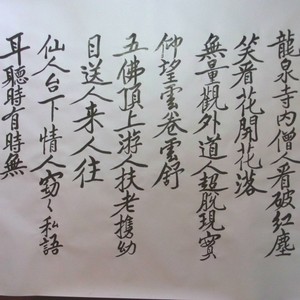 龍泉寺內僧人看破紅塵
笑看花開花落
無量觀外道人超脫現實
仰望雲卷雲舒
五佛頂上游人扶老攜幼
目送人来人往
仙人台下情人窃々私語
耳聽時有時無